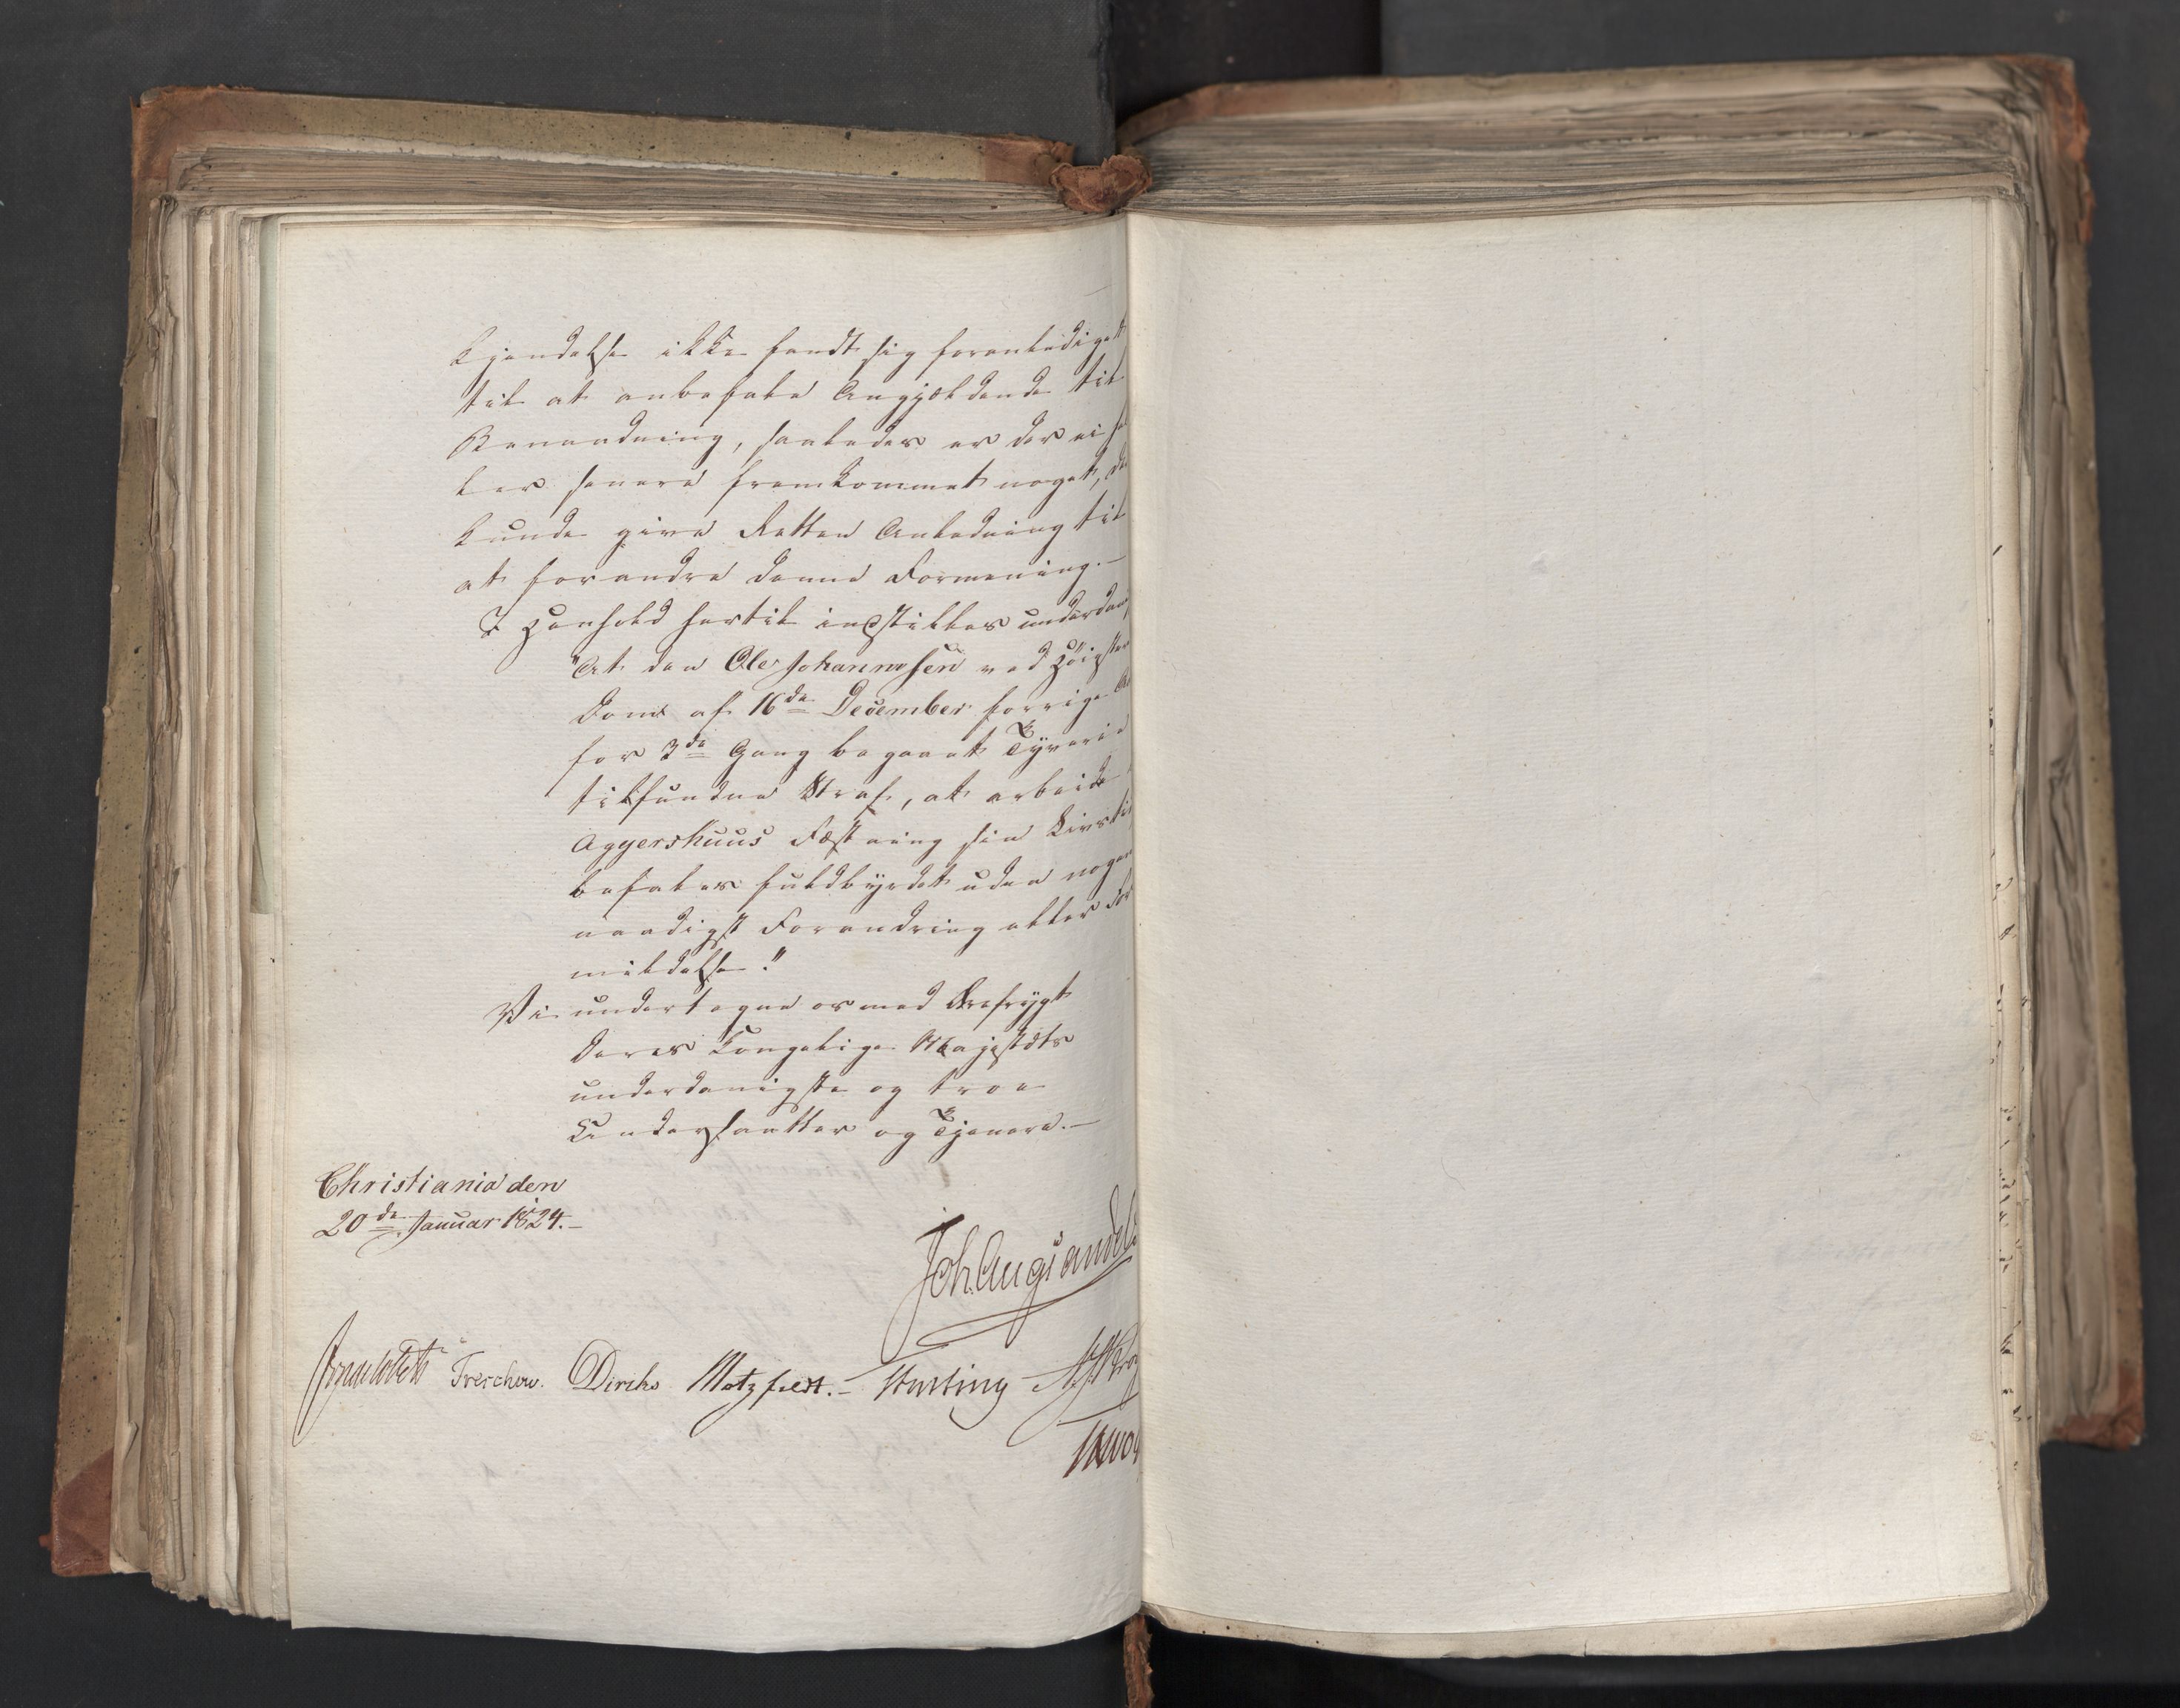 kjendelse ikke fandt sig foranlediget
til at anbefale Angjældende til
Benaadning, saaledes er der ei hel
ler senere fremkommet noget, der
kunde give Retten Anledning til
at forandre denne Formening.—
I Henhold hertil indstilles underdan
"At den Ole Johannesen ved Høieste
Dom af 16de December forrige Aa
for 3de Gang begaaet Tyverie
tilfundne Straf, at arbeide
Aggershuus Fæstning sin Livstid
befales fuldbyrdet uden nogen
naadigst Forandring eller For
mildelse."
Vi undertegne os med Ærefrygt
Deres Kongelige Majestæts
underdanigste og troe
Undersaatter og Tjenere.—
Christiania den
20de Januar 1824.—
Joh. Aug. Sandels
Treschow. Diriks Motzfeldt.— Fasting